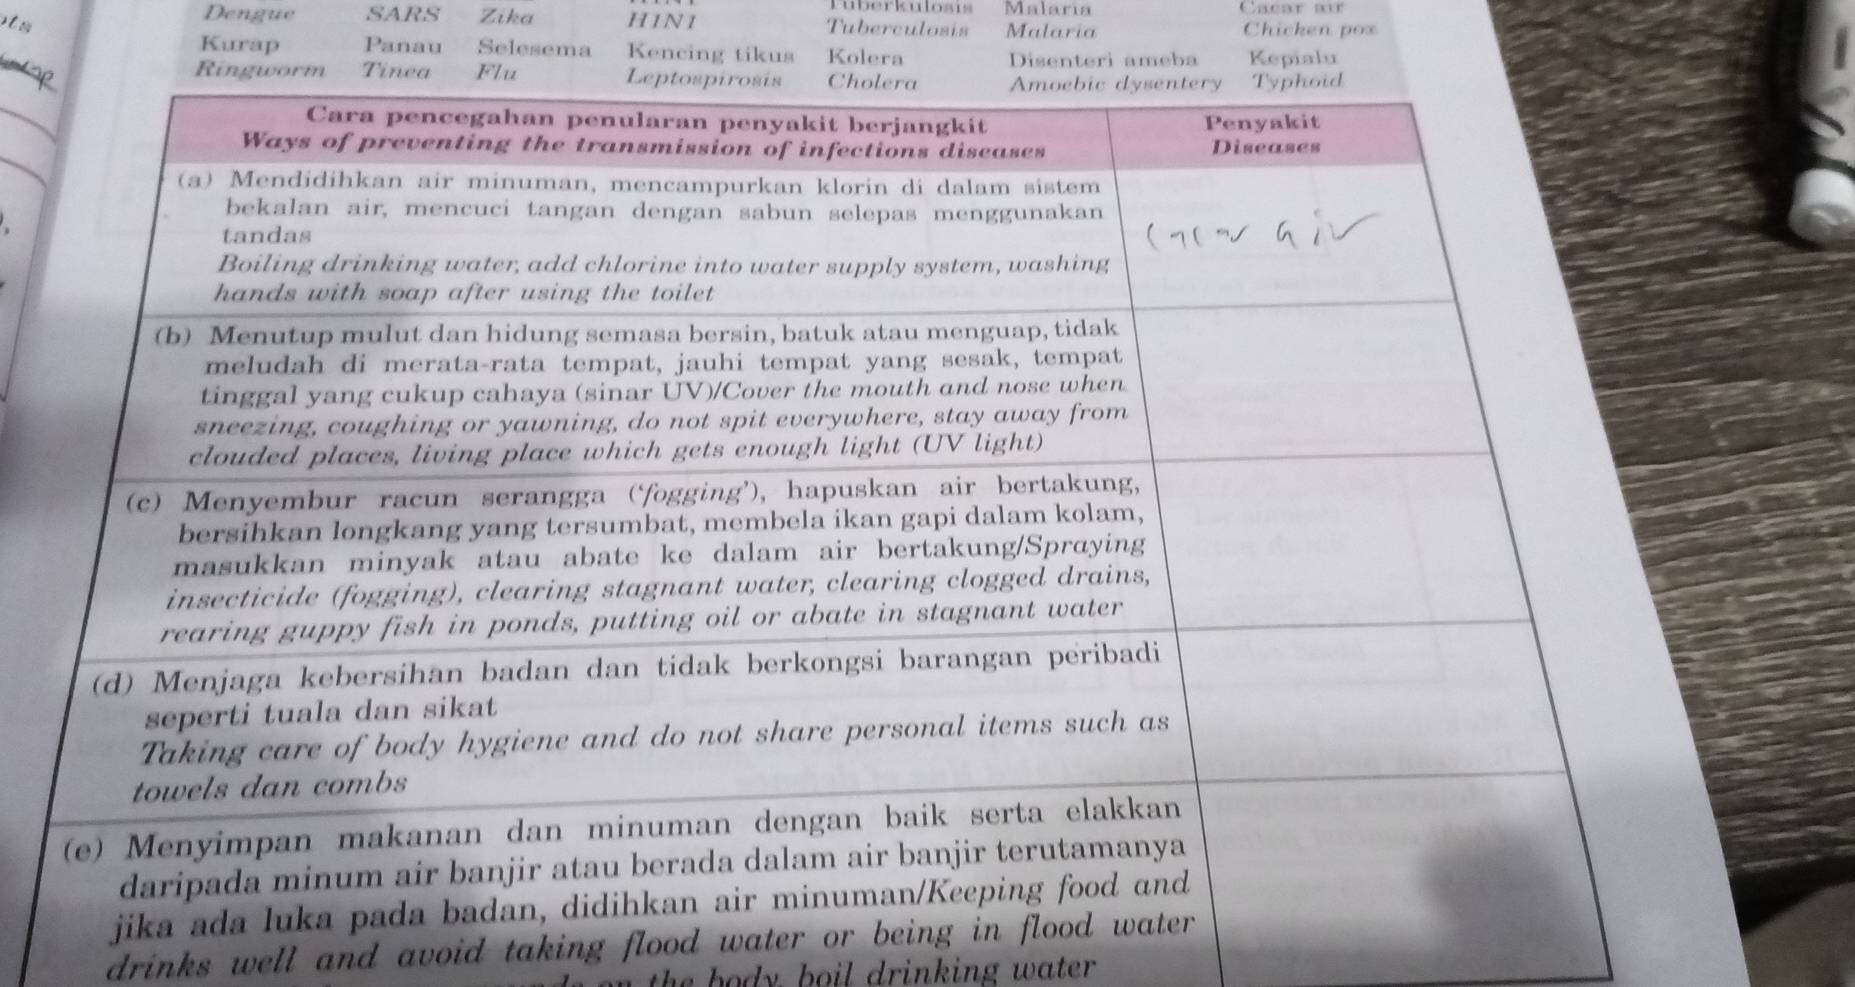 Dengue SARS Zika H1N1 Tuberkulosis Malaria Cacar air
Tuberculosis Malaria Chicken pox
Kurap Panau Selesema Kencing tikus Kolera Disenteri ameba Kepialu
Ringworm Tinea Flu Leptospirosis Cholera Amoebic dysentery Typhoid
Cara pencegahan penularan penyakit berjangkit Penyakit
Ways of preventing the transmission of infections diseases Diseases
(a) Mendidihkan air minuman, mencampurkan klorin di dalam sistem
bekalan air, mencuci tangan dengan sabun selepas menggunakan
tandas
cacar air
Boiling drinking water, add chlorine into water supply system, washing
hands with soap after using the toilet
(b) Menutup mulut dan hidung semasa bersin, batuk atau menguap, tidak
meludah di merata-rata tempat, jauhi tempat yang sesak, tempat
tinggal yang cukup cahaya (sinar UV)/Cover the mouth and nose when
sneezing, coughing or yawning, do not spit everywhere, stay away from
clouded places, living place which gets enough light (UV light)
(c) Menyembur racun serangga (‘fogging’), hapuskan air bertakung,
bersihkan longkang yang tersumbat, membela ikan gapi dalam kolam,
masukkan minyak atau abate ke dalam air bertakung/Spraying
insecticide (fogging), clearing stagnant water, clearing clogged drains,
rearing guppy fish in ponds, putting oil or abate in stagnant water
(d) Menjaga kebersihan badan dan tidak berkongsi barangan peribadi
seperti tuala dan sikat
Taking care of body hygiene and do not share personal items such as
towels dan combs
(e) Menyimpan makanan dan minuman dengan baik serta elakkan
daripada minum air banjir atau berada dalam air banjir terutamanya
jika ada luka pada badan, didihkan air minuman/Keeping food and
drinks well and avoid taking flood water or being in flood water
on the body, boil drinking water